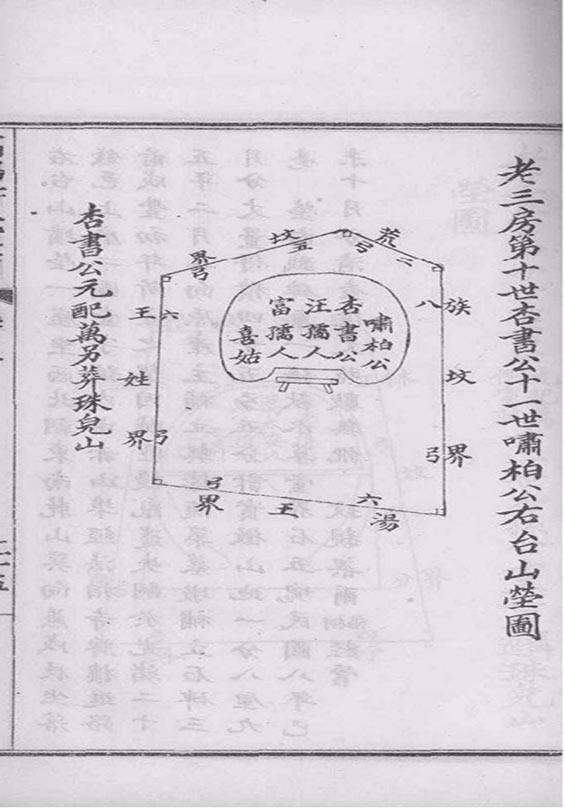 老三房第十世杏書公十一世嘯柏公右台山塋圖
嘯柏公
杏書公
汪孺人
富孺人
喜姑
族坟界
八弓
荒坟界
五弓
湯王界
六弓
王姓界
六弓
杏書公元配萬另葬珠兒山